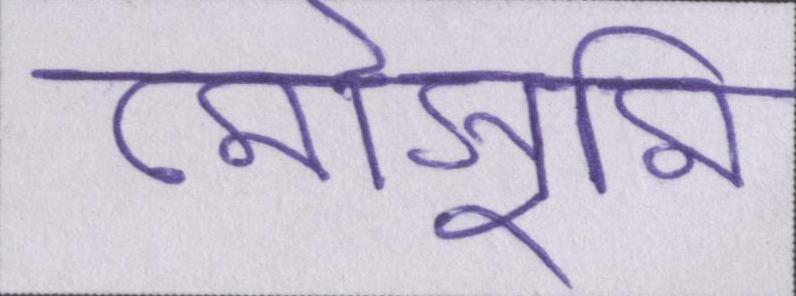 মৌসুমি